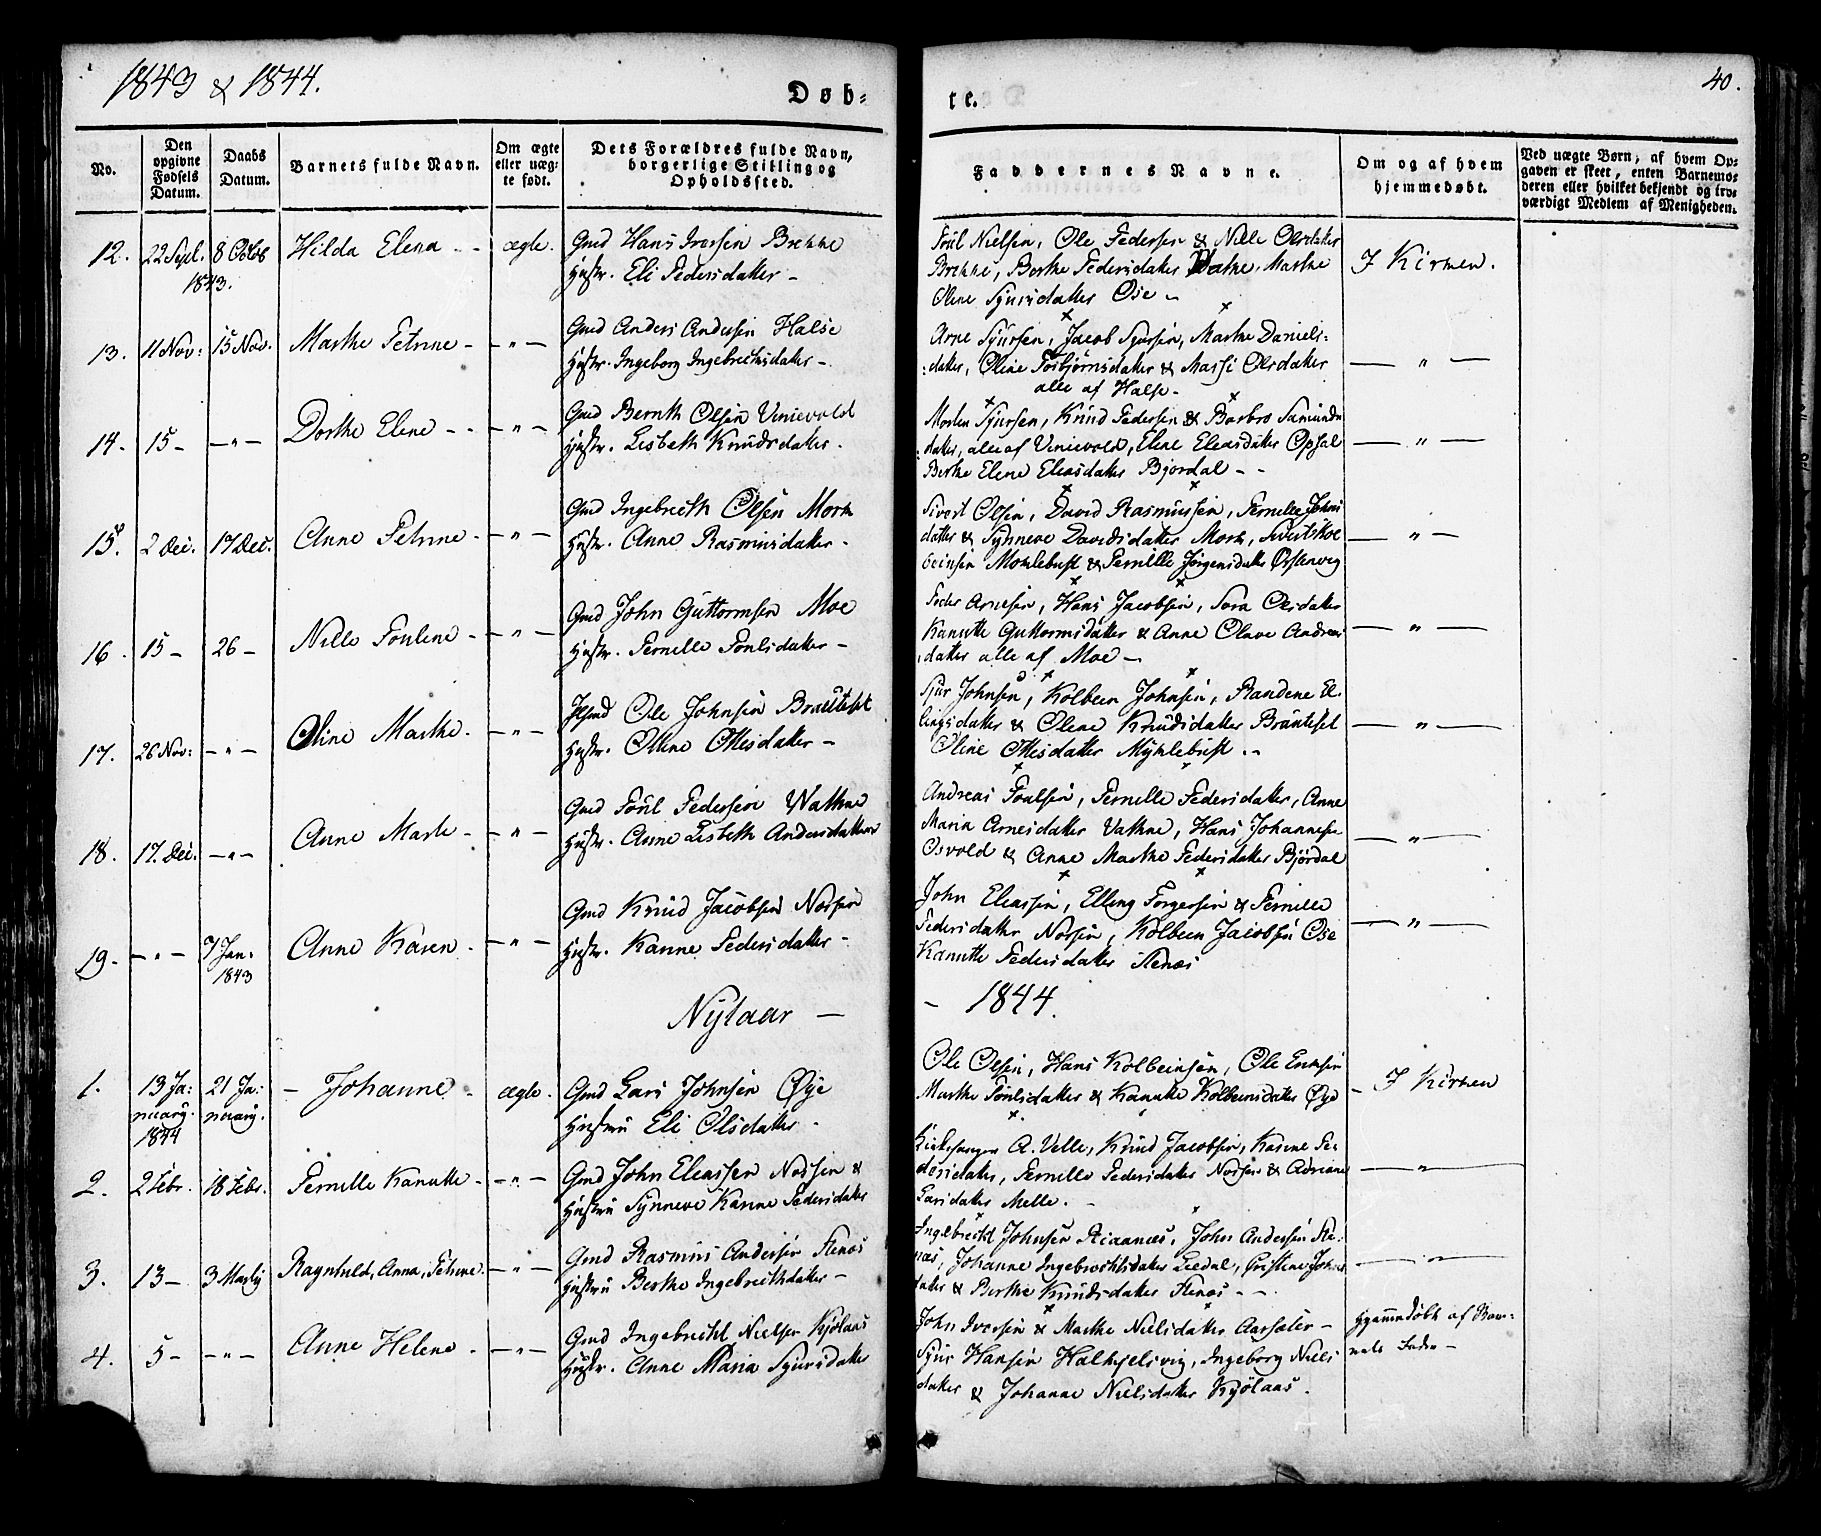 1843 & 1844.
Døb-
te.
40.
No.
Den opgivne Fødsels Datum.
Daabs Datum.
Barnets fulde Navn.
Om ægte eller uæg-te født.
Dets Forældres fulde Navn, borgerlige Stilling og Opholdssted.
Faddernes Navne.
Om og af hvem hjemmedøbt.
Ved uægte Børn, af hvem Op-
gaven er skeet, enten Barnemo-
deren eller hvilket bekjendt og tro-
værdigt Medlem af Menigheden.
12. 22 Sept. 8 Octob 1843. Hilda Elena - - ægte. Gmd Hans Iversen Brekke
Hustr. Eli Pedersdatter -
Poul Nielsen, Ole Pedersen & Nille Olsdatter
Brekke, Berthe Pedersdatter Vatne, Marthe
Oline Sjursdatter Øse -
I Kirken.
13. 11 Nov: 15 Nov. Marthe Petrine - - " - Gmd Anders Andersen Halse
Hustr. Ingeborg Ingebrethsdatter -
Arne Sjursen, Jacob Sjursen, Marthe Daniels-
datter, Oline Torbjørnsdatter & Massi Olsdatter
alle af Halse -
- " -
14. 15 - - " - Dorthe Elene - - - " - Gmd Bernth Olsen Vinievold
Hustr. Lisbeth Knudsdatter -
Morten Sjursen, Knud Pedersen & Barbro Samunds
datter, alle af Vinievold, Elene Eleasdatter Opsal
Berthe Elene Eleasdatter Bjørdal - -
- " -
15. 2 Dec. 17 Dec. Anne Petrine - - " - Gmd Ingebreth Olsen Mork
Hustr. Anne Rasmusdatter -
Sivert Olsen, David Rasmussen, Pernille Johns
datter & Synneve Davidsdatter Mork, Sivert Kol
beinsen Moklebust & Pernille Jørgensdatter Østenvig
- " -
16. 15 - 26 - Nille Pouline - - " - Gmd John Guttormsen Moe
Hustr. Pernille Poulsdatter -
Peder Arnesen, Hans Jacobsen, Sara Olsdatter
Kanutte Guttormsdatter & Anne Olave Andreas
datter alle af Moe -
- " -
17. 26 Nov: - " - Oline Marthe. - " - Ole Johnsen Brauteset
Hustr. Oline Ottesdatter -
Sjur Johnsen, Kolbeen Johnsen, Randene El-
lingsdatter & Olene Knudsdatter Brauteset
Oline Ottesdatter Myklebust - -
- " -
18. 17. Dec. - " - Anne Marte - - " - Gmd Poul Pedersen Wathne
Hustr. Anne Lisbeth Andersdatter
Andreas Poulsen, Pernille Pedersdatter, Anne
Maria Arnesdatter Vathne, Hans Johannese
Osvold & Anne Marthe Pedersdatter Bjørdal
- " -
19. - " - 7 Jan: 1843 Anne Karen - - " - Gmd Knud Jacobsen Nossen
Hustr. Kanne Pedersdatter -
John Eleassen, Elling Torgersen & Pernille
Pedersdatter Nossen, Kolbeen Jacobsen Øse
Kanutte Pedersdatter Stenæs
- " -
Nytaar -
- 1844.
1. 13 Ja-nuary. 1844 21 Ja-nuary. - Johanne - ægte. Gmd Lars Johnsen Øye
Hustru Eli Olsdatter -
Ole Olsen, Hans Kolbeinsen, Ole Ericksen
Marthe Poulsdatter & Kanutte Kolbeensdatter Øye
- I Kirken
2. 2 Febr. 18 Febr. Pernille Kanutte - - " - Gmd John Eleassen Nossen &
Hustru Synneve Karine Pedersdatter
Kirkesanger A. Velle, Knud Jacobsen, Karine Pe-
dersdatter, Pernille Pedersdatter Nossen & Adriane
Larsdatter Melle -
- " -
3. 13 - 3 Marty Ragnhild, Anna, Petrine - " - Gmd Rasmus Andersen Stenæs
Hustru Berthe Ingebrethdatter -
Ingebrecht Johnsen Riaanæs, John Andersen Ste-
næs, Johanne Ingebrechtsdatter Liedal, Christine Johns
datter & Berthe Knudsdatter Stenæs - -
- " -
4. 5 - - " - Anne Helene - - " - Gmd Ingebricht Nielsen Kjølaas
Hustr. Anne Maria Sjursdatter
John Iversen & Marthe Nielsdatter Aarsæter -
Sjur Hansen Halkjelsvig, Ingeborg Niels
datter & Johanne Nielsdatter Kjølaas.
Hjemmedøbt af Bar-
nets Fader -